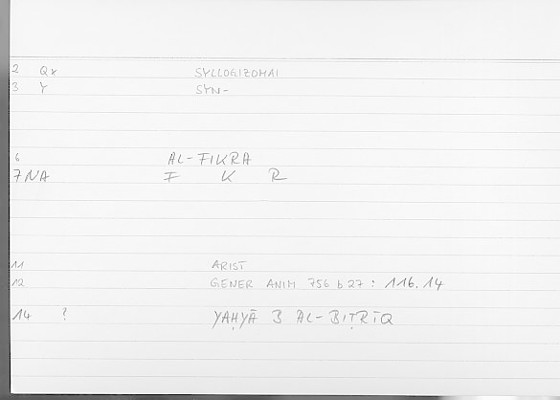 2 Qv SYLLOGIZOMAI
3 Y SYN-
6 AL-FIKRA
7 NA F K R
11 ARIST
12 GENER ANIM 756 b 27 : 116.14
14 ? YAḤYĀ B AL-BIṬRĪQ